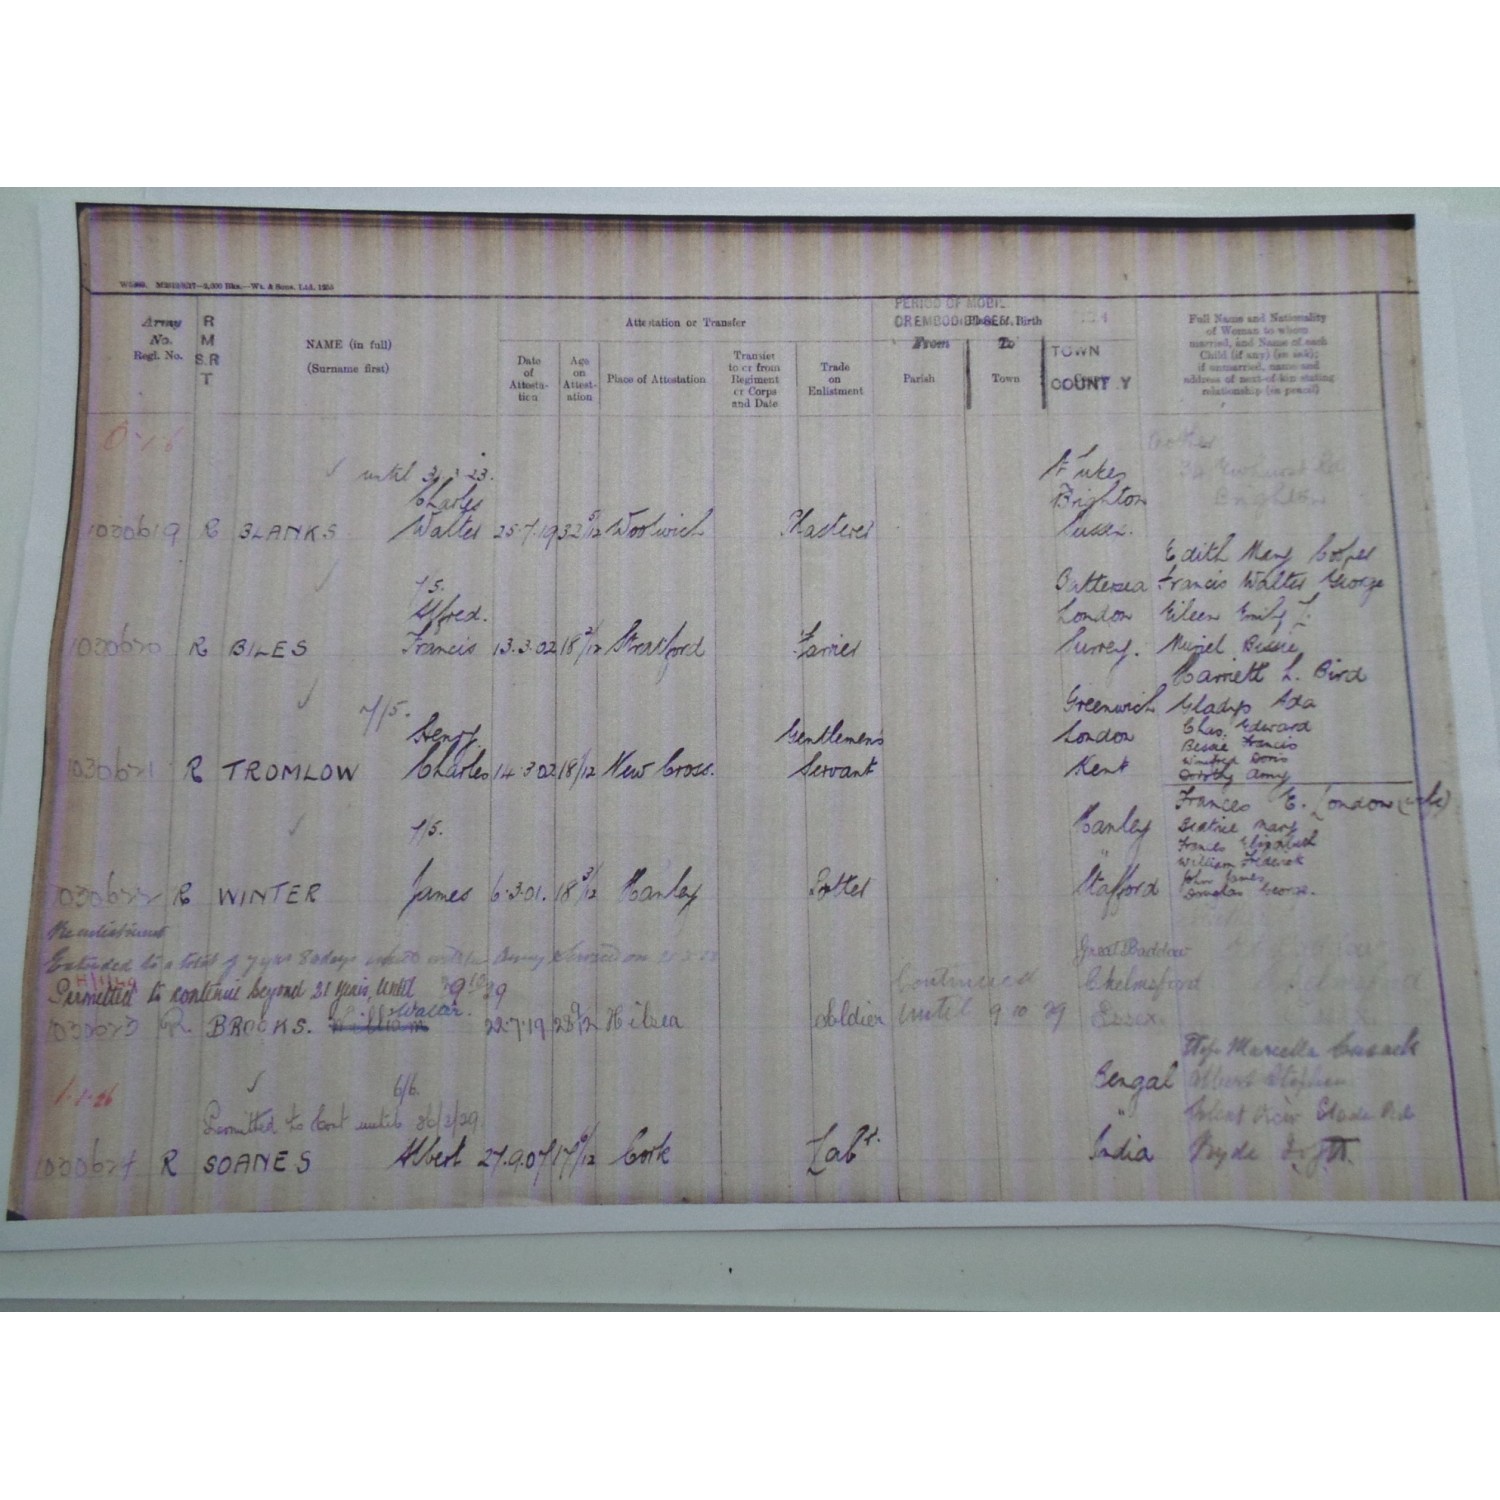 Army
No.
Regl. No.
R
M
S.R
T
NAME (in full)
(Surname first)
Attestation or Transfer
Date
of
Attesta-
tion
Age
on
Attest-
ation
Place of Attestation
Transfer
to or from
Regiment
or Corps
and Date
Trade
on
Enlistment
PERIOD OF MOBIL
OR EMBOD
Place of Birth
From
To
Parish
Town
TOWN
COUNTY
Full Name and Nationality
of Woman to whom
married, and Name of each
Child (if any) (in ink);
if unmarried, name and
address of next-of-kin stating
relationship (in pencil)
until
Charles
Brighton
1030619 R BLANKS Walter 25.7.19 32 5/12 Woolwich Plasterer Sussex.
Edith Mary Cooper
7/5. Battersea Francis Walter George
Alfred. London Eileen Emily
1030620 R BILES Francis 13.3.02 18 2/12 Stratford Farrier Surrey. Muriel Bessie
Harriett L. Bird
7/5. Greenwich Gladys Ada
Henry Gentlemens London Chas. Edward
Bessie Francis
Winifred Doris
1030621 R TROMLOW Charles 14.3.02 18 /12 New Cross. Servant Kent Dorothy Amy
Frances E. London
7/5. Hanley Beatrice Mary
Frances Elizabeth
William Frederick
John James
1030622 R WINTER James 6.3.01. 18 3/12 Hanley Potter Stafford Douglas George.
Re enlistment
Extended to a total of 7 years 8 days Army
Great Baddow
Permitted to continue beyond 21 years, until 9 10 29 Continued Chelmsford
1030623 R. BROOKS. 22.7.19 28 9/12 Hilsea Soldier until 9 10 29 Essex.
Marcella Cusack
6/6. Bengal Albert Stephen
Permitted to Cont until
1030624 R SOANES Albert 27.9.07 17 /12 Cork Labr. India Ryde